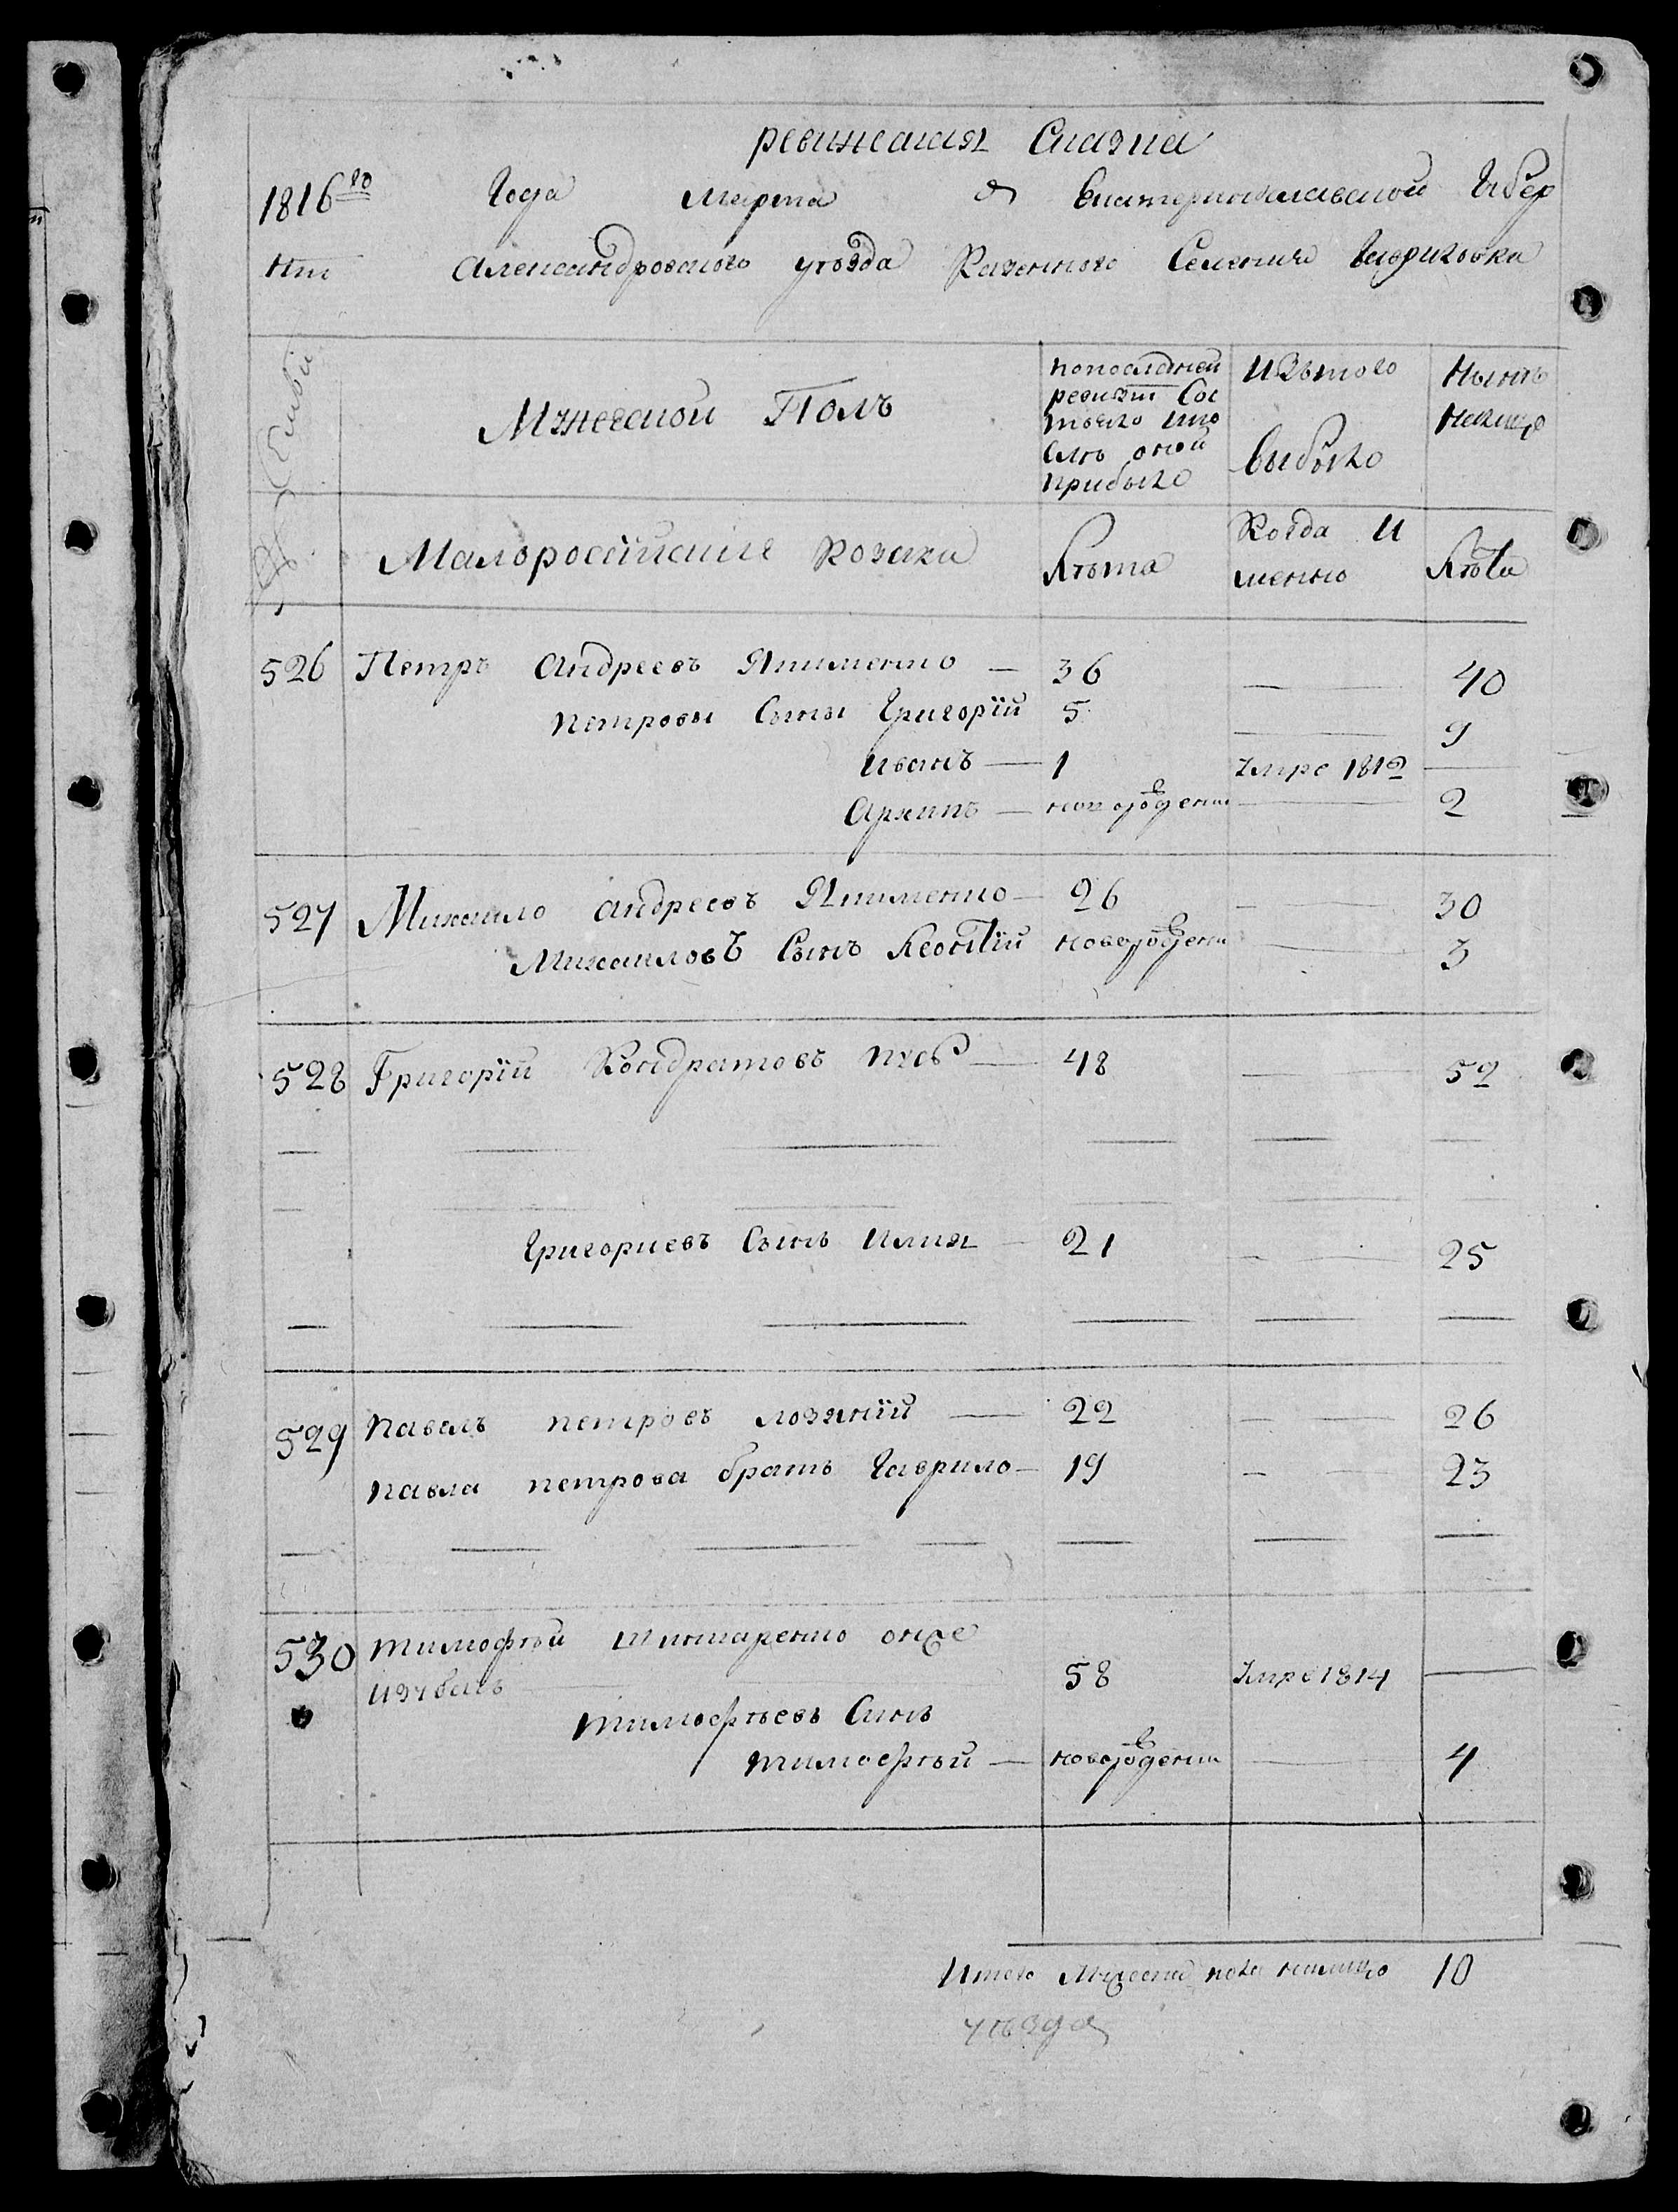 ревижская Сказка
1816го Года Марта д Екатеринославской Губер
ніи Александровского уѣзда Казенного Селения Гавриловка
Мужеской Полъ
попоследней ревизіи Состояло ипосль оной прибыло
Изътого выбыло
Нынѣ Налицо
Семьи
Малороссійские Козаки
Лѣта
Когда И менно
Лѣта
526 Петръ Андреевъ Якименко — 36 — 40
Петровы Сыны Григорїй 5 — 9
Иванъ — 1 Умре 1812 —
Архипъ — новорожденн — 2
527 Михаило андреевъ Якименко — 26 — 30
Михаиловъ Сынъ Леонтїй новорожденн — 3
528 Григорїй Кондратовъ — 48 — 52
Григориевъ Сынъ Илия — 21 — 25
529 Павелъ петровъ — 22 — 26
павла петрова братъ Гаврило — 19 — 23
530 тимофѣй онже
58 Умре 1814 —
тимофѣевъ Синъ
тимофѣй — новорожденн — 4
Итого Мужеска пола налицо 10
уѣзда